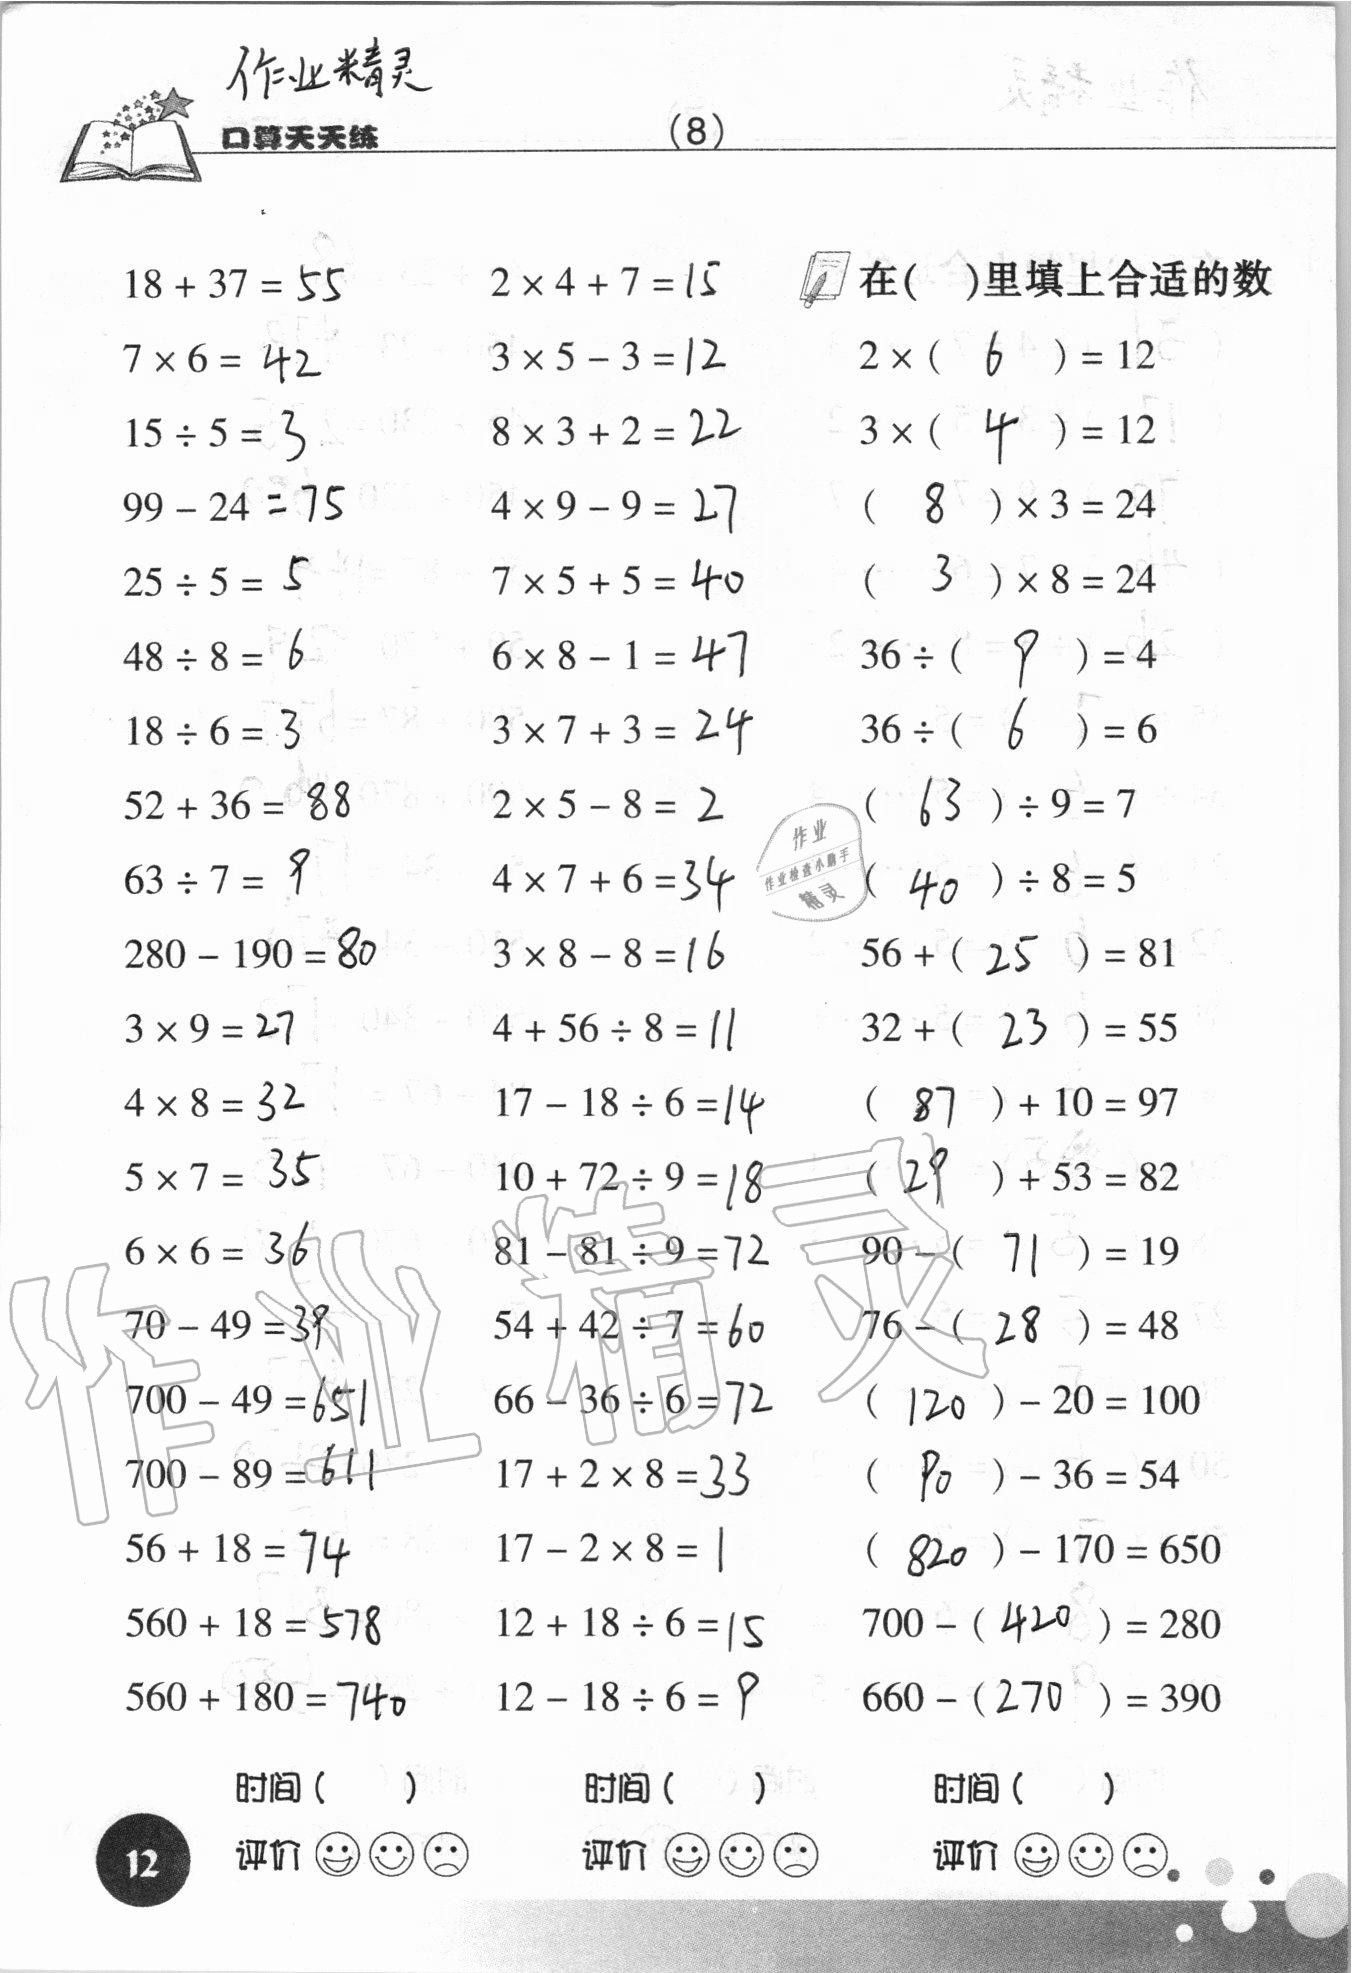 作业精灵
口算天天练
(8)
18 + 37 = 55
7 × 6 = 42
15 ÷ 5 = 3
99 - 24 = 75
25 ÷ 5 = 5
48 ÷ 8 = 6
18 ÷ 6 = 3
52 + 36 = 88
63 ÷ 7 = 9
280 - 190 = 80
3 × 9 = 27
4 × 8 = 32
5 × 7 = 35
6 × 6 = 36
70 - 49 = 39
700 - 49 = 651
700 - 89 = 611
56 + 18 = 74
560 + 18 = 578
560 + 180 = 740
时间( )
评价
2 × 4 + 7 = 15
3 × 5 - 3 = 12
8 × 3 + 2 = 22
4 × 9 - 9 = 27
7 × 5 + 5 = 40
6 × 8 - 1 = 47
3 × 7 + 3 = 24
2 × 5 - 8 = 2
4 × 7 + 6 = 34
3 × 8 - 8 = 16
4 + 56 ÷ 8 = 11
17 - 18 ÷ 6 = 14
10 + 72 ÷ 9 = 18
81 - 81 ÷ 9 = 72
54 + 42 ÷ 7 = 60
66 - 36 ÷ 6 = 72
17 + 2 × 8 = 33
17 - 2 × 8 = 1
12 + 18 ÷ 6 = 15
12 - 18 ÷ 6 = 9
时间( )
评价
在( )里填上合适的数
2 × ( 6 ) = 12
3 × ( 4 ) = 12
( 8 ) × 3 = 24
( 3 ) × 8 = 24
36 ÷ ( 9 ) = 4
36 ÷ ( 6 ) = 6
( 63 ) ÷ 9 = 7
( 40 ) ÷ 8 = 5
56 + ( 25 ) = 81
32 + ( 23 ) = 55
( 87 ) + 10 = 97
( 29 ) + 53 = 82
90 - ( 71 ) = 19
76 - ( 28 ) = 48
( 120 ) - 20 = 100
( 90 ) - 36 = 54
( 820 ) - 170 = 650
700 - ( 420 ) = 280
660 - ( 270 ) = 390
时间( )
评价
作业
作业检查小助手
精灵
作业精灵
12